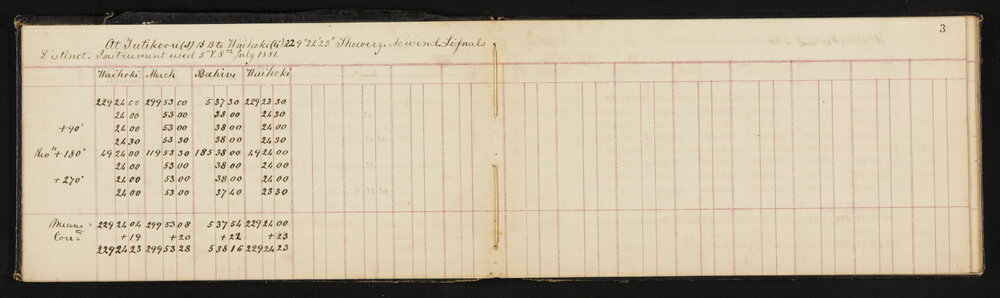 3
At Tutikoori(s) 1s B to Waihoki(ti) 229°24'23" Showery. No wind. Signals
Distinct. Instrument used 5" 8th July 1881.
Waihoki March Beehive Waihoki
229 24 00 299 53 00 5 37 30 229 23 30
24 00 53 00 38 00 24 30
+90° 24 00 53 00 38 00 24 00
24 30 53 30 38 00 24 30
+180° 49 24 00 119 53 30 185 38 00 49 24 00
24 00 53 00 38 00 24 00
+270° 24 00 53 00 38 00 24 00
24 00 53 00 37 40 23 30
Means = 229 24 04 299 53 08 5 37 54 229 24 00
Corr = +19 +20 +22 +23
229 24 23 299 53 28 5 38 16 229 24 23